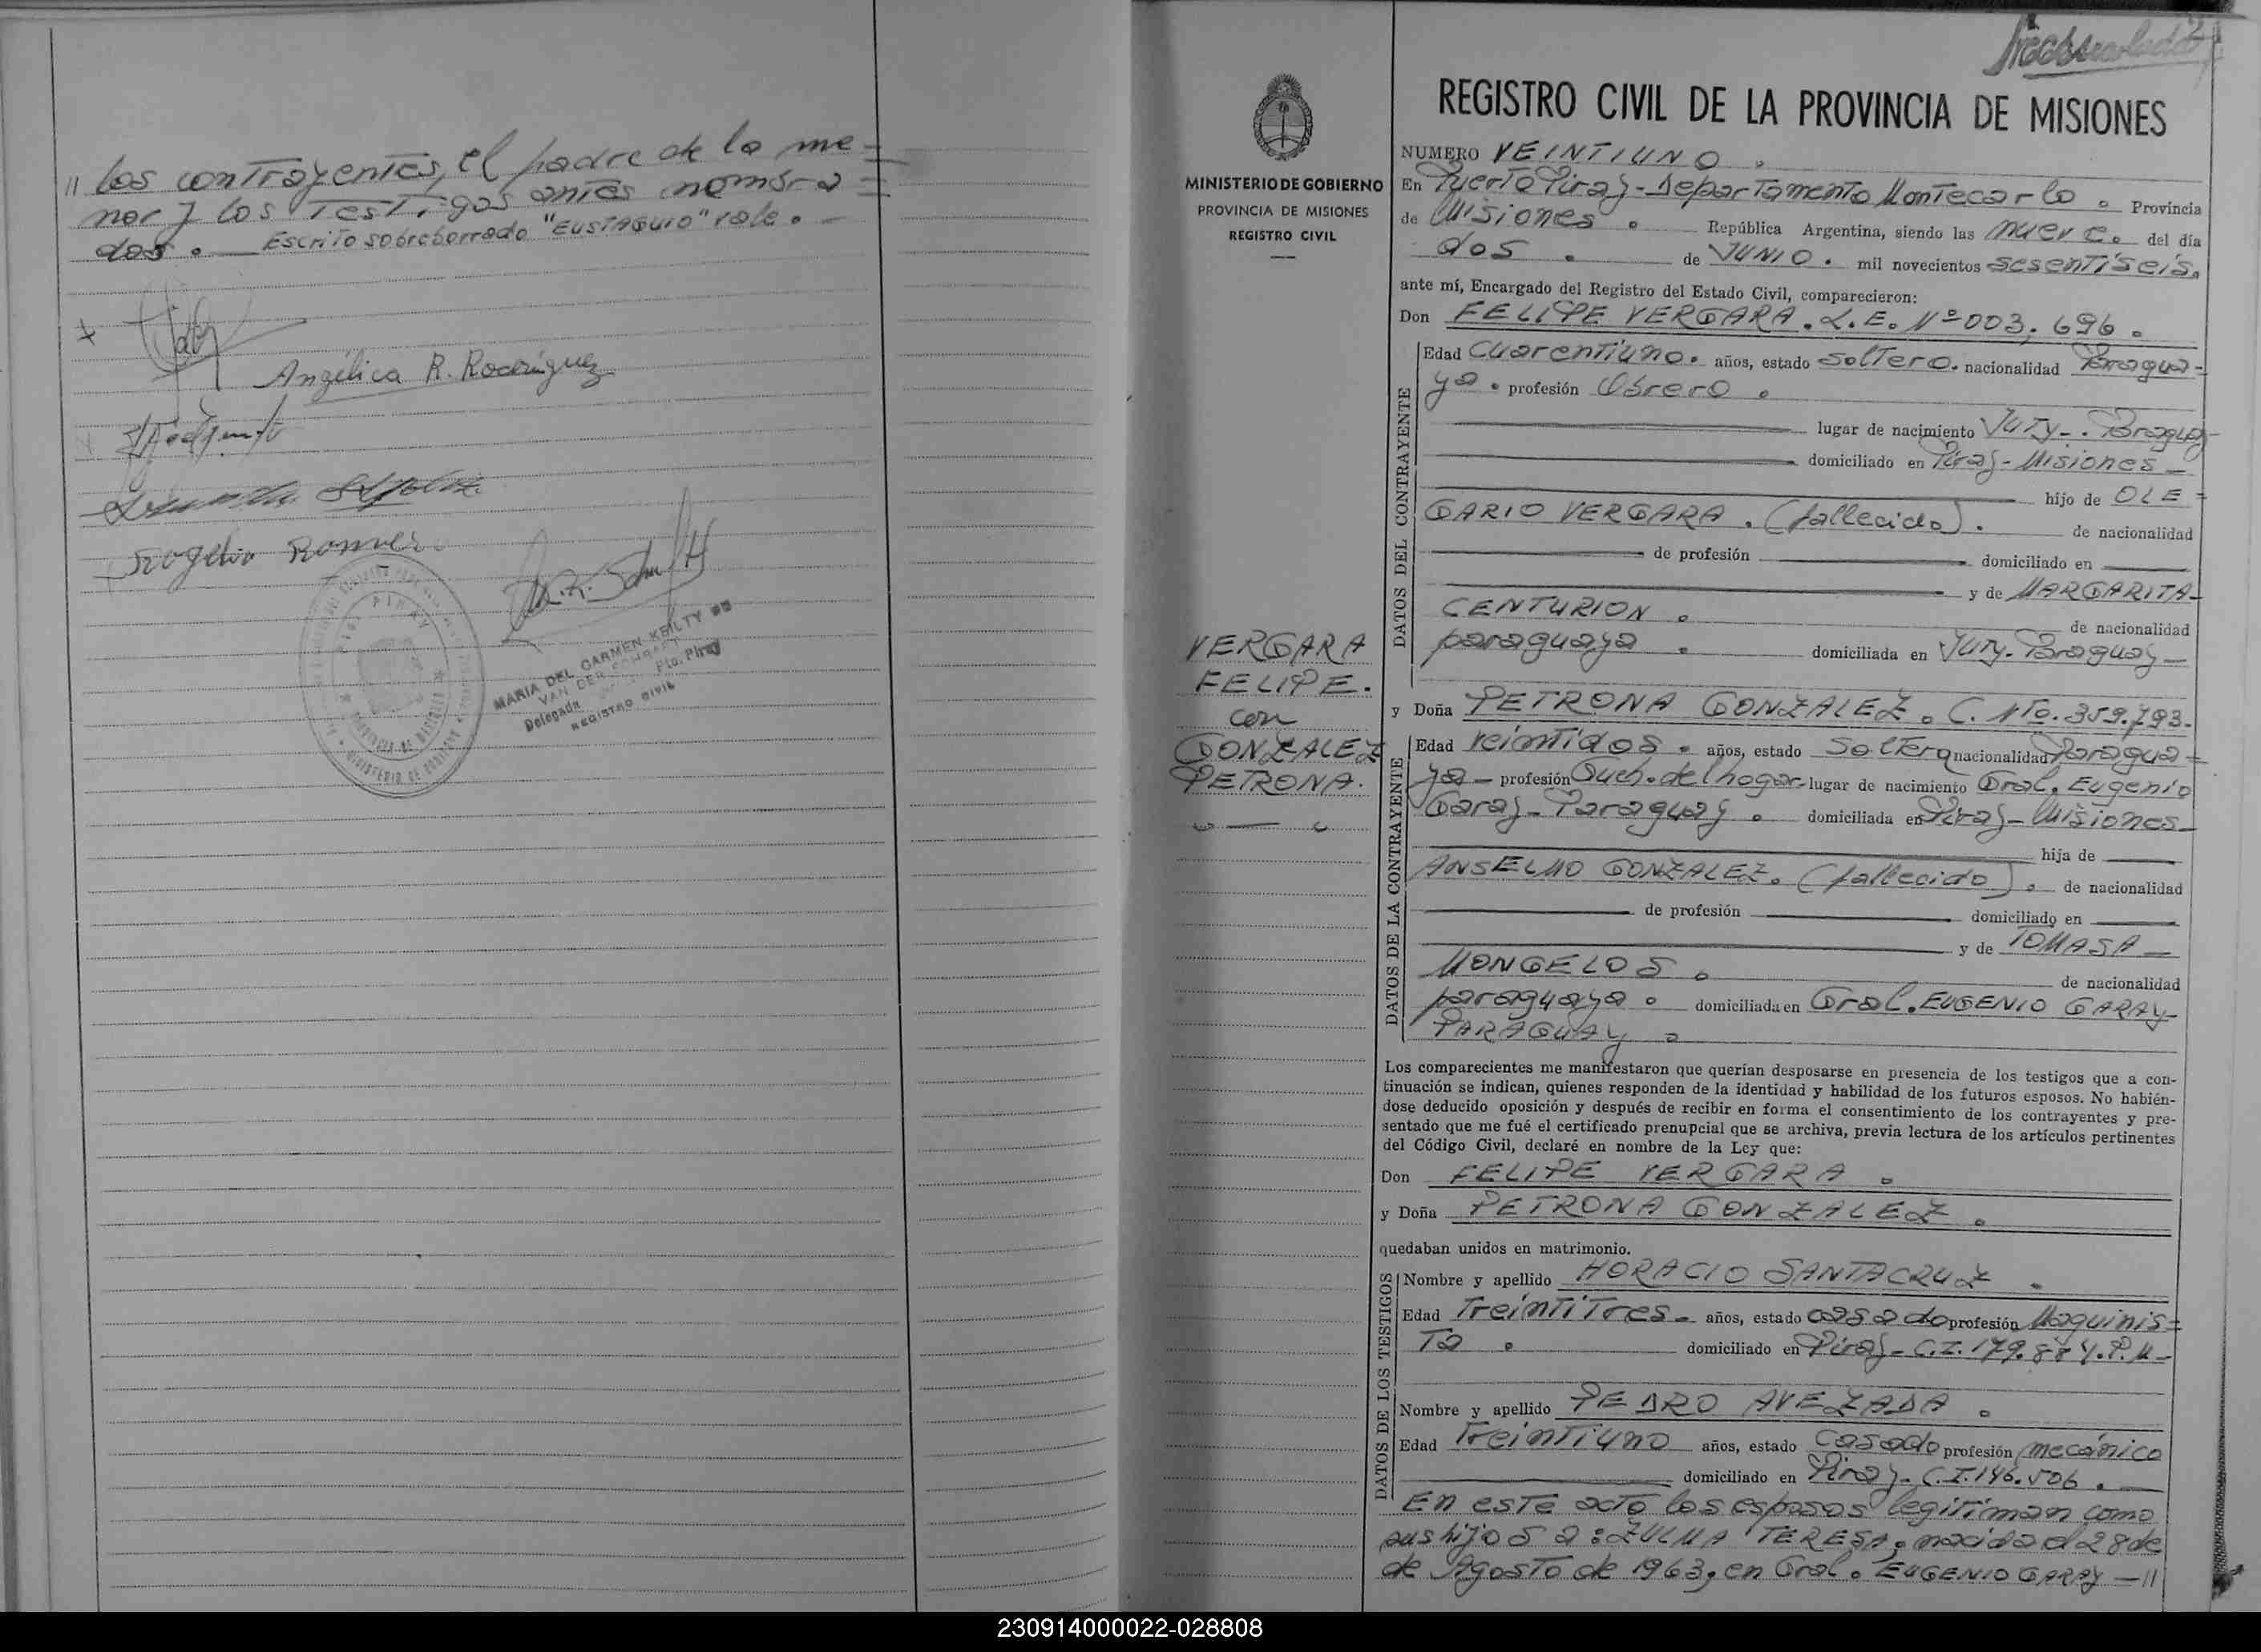 " los contrayentes, el padre de la me=
nor y los testigos antes nombra=
dos. — Escrito sobreborrado "EUSTAQUIO" vale. —
Angélica R. Rodríguez
Rogelio
MARIA DEL CARMEN KEILTY DE
VAN DER SCHRAFT
Delegada Pto. Piray
REGISTRO CIVIL
MINISTERIO DE GOBIERNO
PROVINCIA DE MISIONES
REGISTRO CIVIL
VERGARA
FELIPE.
con
GONZALEZ
PETRONA.
REGISTRO CIVIL DE LA PROVINCIA DE MISIONES
NUMERO VEINTIUNO.
En Puerto Piray - Departamento Montecarlo. Provincia
de Misiones. República Argentina, siendo las nueve. del día
dos. de JUNIO. mil novecientos sesentiseis.
ante mí, Encargado del Registro del Estado Civil, comparecieron:
Don FELIPE VERGARA. L.E. Nº 003,696.
DATOS DEL CONTRAYENTE
Edad Cuarentiuno. años, estado soltero. nacionalidad Paragua-
ya. profesión Obrero.
lugar de nacimiento Yuty-. Paraguay
domiciliado en Piray - Misiones —
hijo de OLE=
GARIO VERGARA. (fallecido). de nacionalidad
de profesión domiciliado en
y de MARGARITA-
CENTURION. de nacionalidad
paraguaya. domiciliada en Yuty. Paraguay —
y Doña PETRONA GONZALEZ. C. Nto. 359.793.
DATOS DE LA CONTRAYENTE
Edad veintidos. años, estado Soltera nacionalidad Paragua=
ya - profesión Queh. del hogar. lugar de nacimiento Gral. Eugenio
Garay - Paraguay. domiciliada en Piray - Misiones —
hija de
ANSELMO GONZALEZ. (fallecido). de nacionalidad
de profesión domiciliado en
y de TOMASA —
MONGELOS. de nacionalidad
paraguaya. domiciliada en Gral. EUGENIO GARAY-
PARAGUAY.
Los comparecientes me manifestaron que querían desposarse en presencia de los testigos que a con-
tinuación se indican, quienes responden de la identidad y habilidad de los futuros esposos. No habién-
dose deducido oposición y después de recibir en forma el consentimiento de los contrayentes y pre-
sentado que me fué el certificado prenupcial que se archiva, previa lectura de los artículos pertinentes
del Código Civil, declaré en nombre de la Ley que:
Don FELIPE VERGARA.
y Doña PETRONA GONZALEZ.
quedaban unidos en matrimonio.
DATOS DE LOS TESTIGOS
Nombre y apellido HORACIO SANTACRUZ.
Edad Treintitres - años, estado casado profesión Maquinis=
ta. domiciliado en Piray - C.I. 179.884. P.M -
Nombre y apellido PEDRO AVEZADA.
Edad Treintiuno años, estado Casado profesión mecánico
domiciliado en Piray - C.I. 146.506. —
En este acto los esposos legitiman como
sus hijos a: ZULMA TERESA, nacida el 28 de
de Agosto de 1963, en Gral. EUGENIO GARAY — "
230914000022-028808